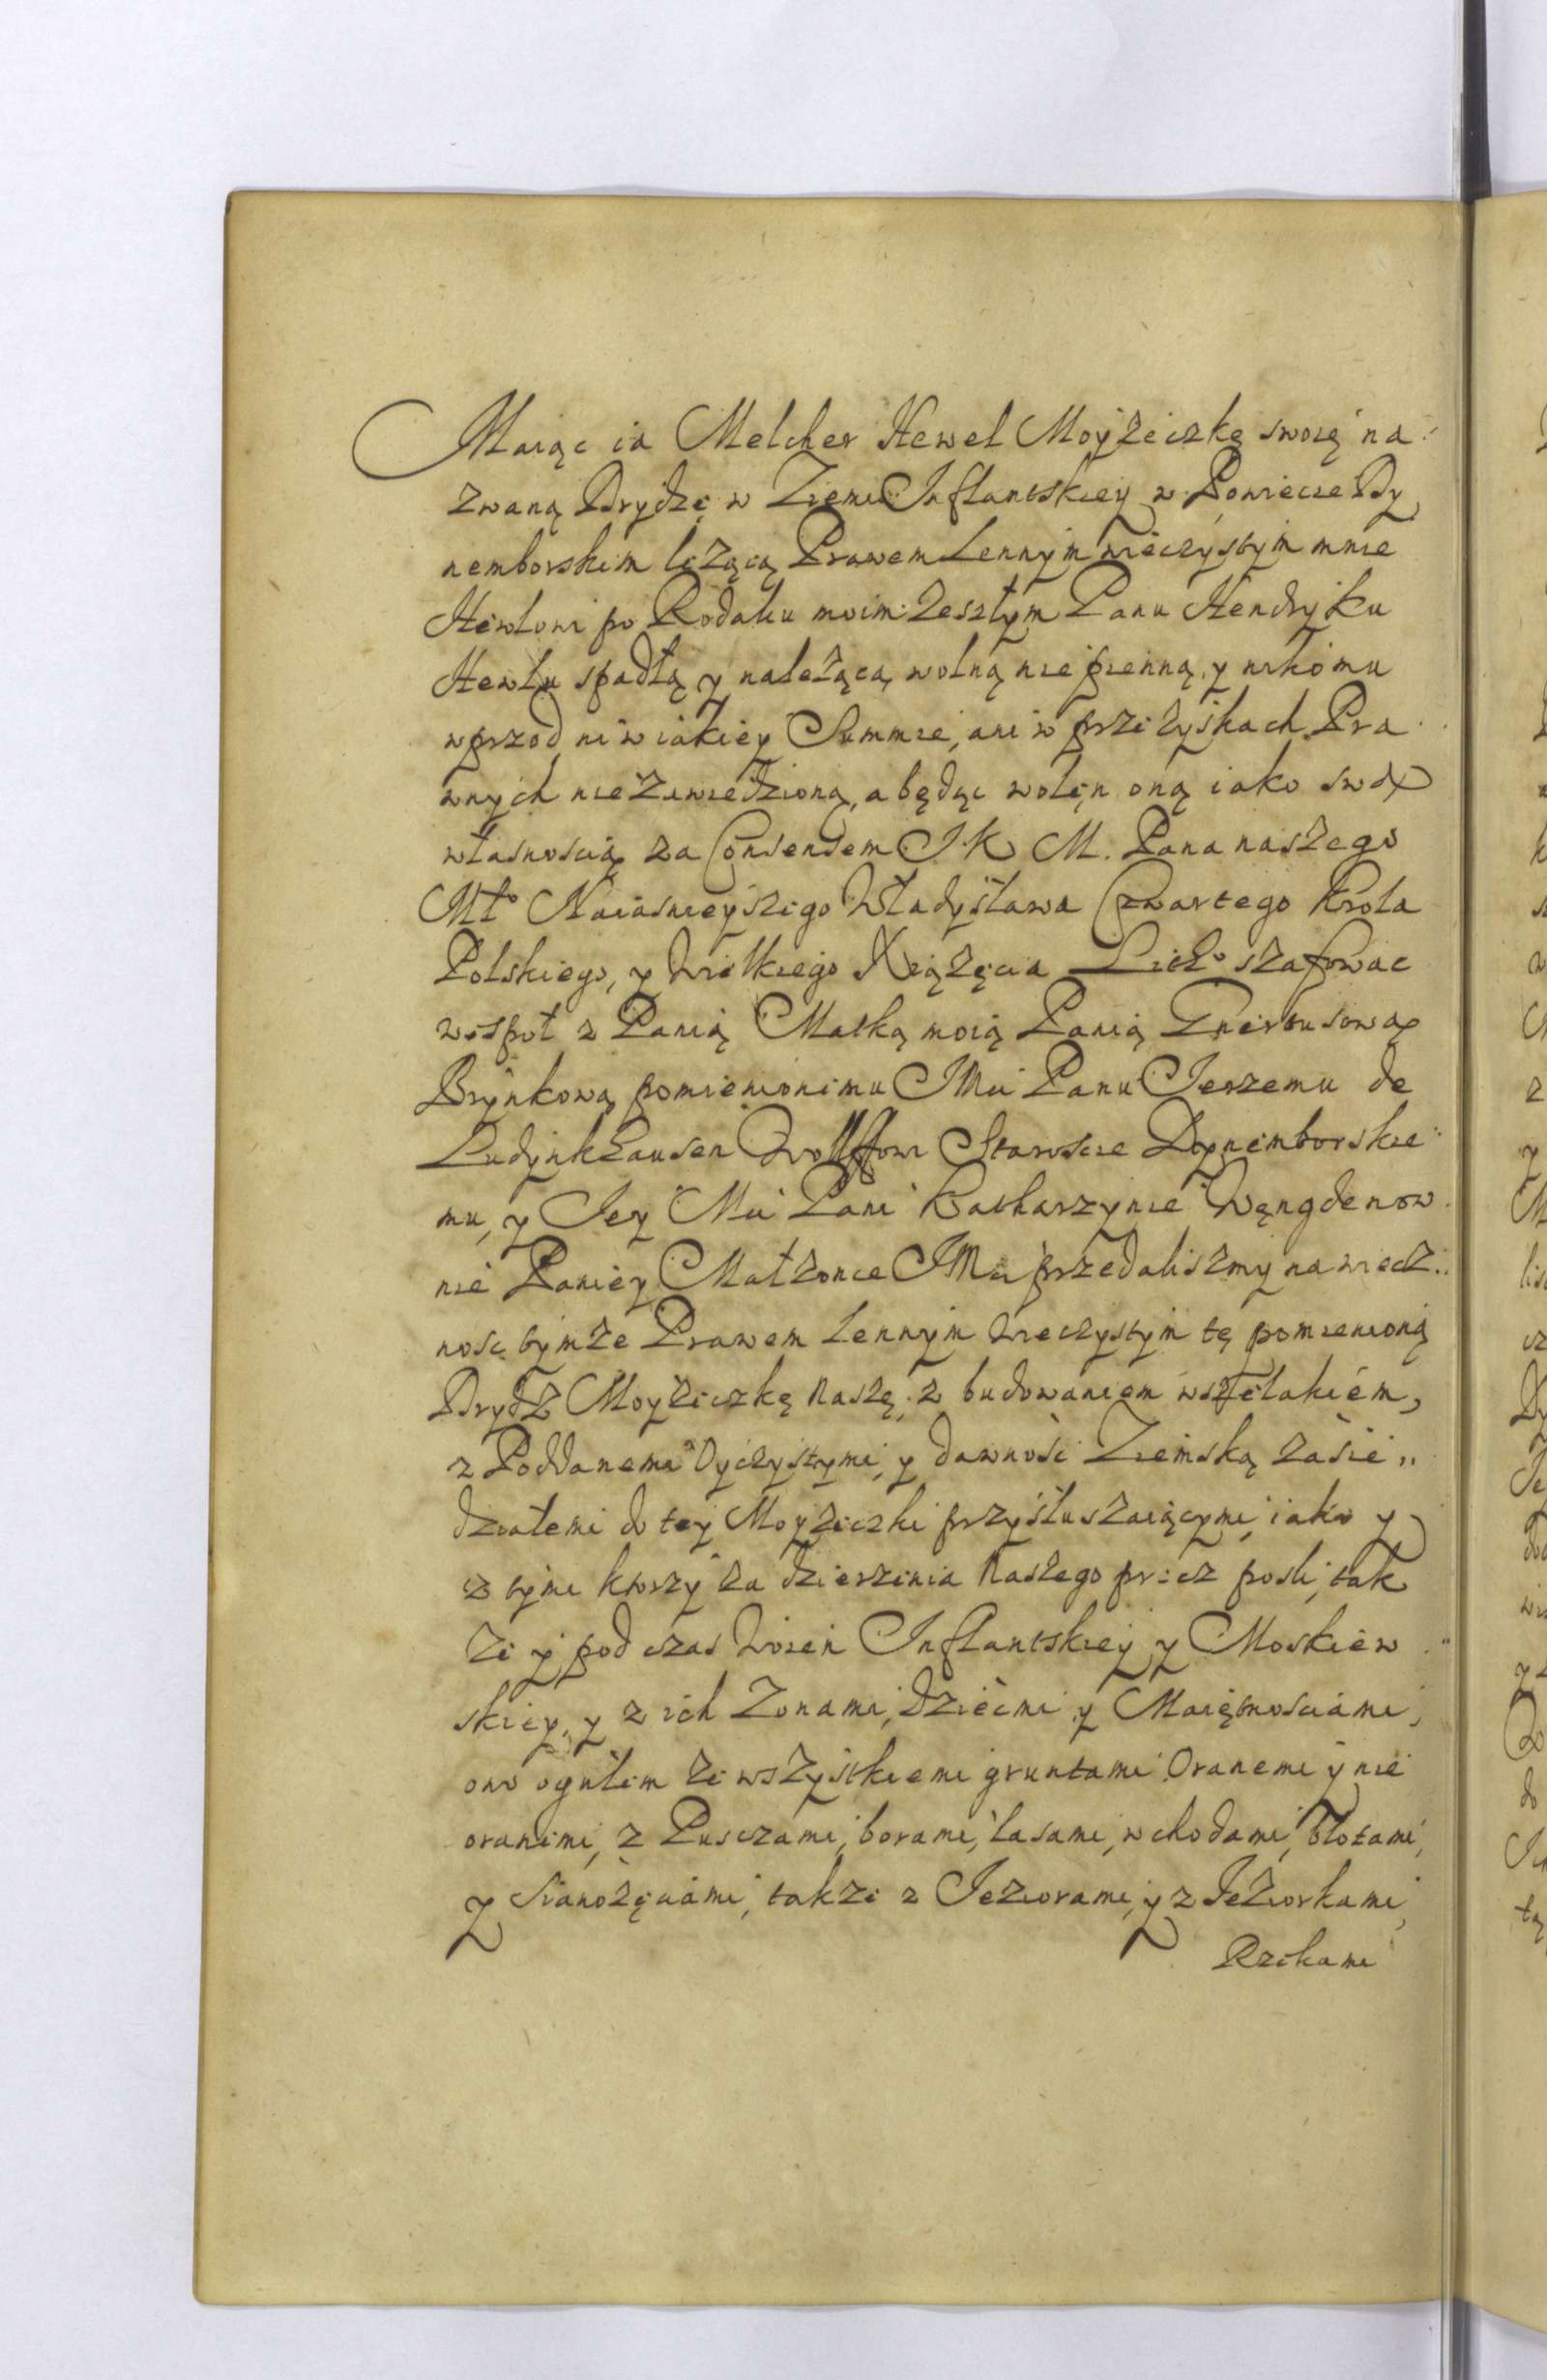 Maiąc ia Melcher Hewel Moyżeczkę swoię na-
zwaną Drydzę w Ziemi Inflantskiey w Powiecie Dy
nemborskim leżącą Prawem Lennym wieczystym mnie
Hewlowi po Rodaku moim zeszłym Panu Hendryku
Hewlu spadłą y należącą, wolną niepienną, y nikomu
wprzod ni w iakiey Summie, ani w przezyskach Pra
wnych niezawiedzioną, a będąc wolen oną iako swą
własnoscią za Consensem I K M. Pana naszego
Mło Naiasnieyszego Władysława Czwartego Krola
Polskiego, y Wielkiego Xiążęcia Litto szafowac
wespoł z Panią Matką moią Panią
Brynkową pomienionemu IMci Panu Ierzemu de
Ludynkhausen Wolffowi Staroscie Dynemborskie
mu, y Iey Mci Pani Katharzynie Węngdenow
nie Paniey Małzonce IMci przedaliszmy na wiecz
nosc tymże Prawem Lennym Wieczystym tę pomienioną
Drydz Moyżeczkę naszę, z budowaniem wszelakiem,
z Poddanemi Oyczystymi, y dawnosci Ziemską zasie„
działemi do tey Moyżeczki przysłuszaiącymi, iako y
z tymi ktorzy za dzierzenia naszego precz posli, tak
że y pod czas Woien Inflantskiey y Moskiew„
skiey, y z ich Zonami, dziecmi y Maiętnosciami,
owo ogułem ze wszystkiemi gruntami Oranemi y nie
oranemi, z Pusczami, borami, lasami, wchodami, błotami,
y Sianożęciami, takze z Ieziorami, y z Ieziorkami,
Rzekami